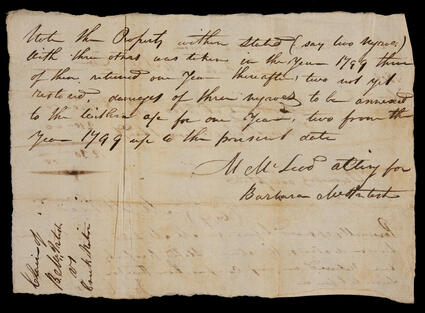 Note the Property within stated (say two Negroes)
with three others was taken in the Year 1799 three
of them returned one Year thereafter, two not yet
restored, damages of three negroes to be annexed
to the within a/c for one Year, two from the
Year 1799 up to the present date
M McLeod attiny for
Barbara
Claim of
vs